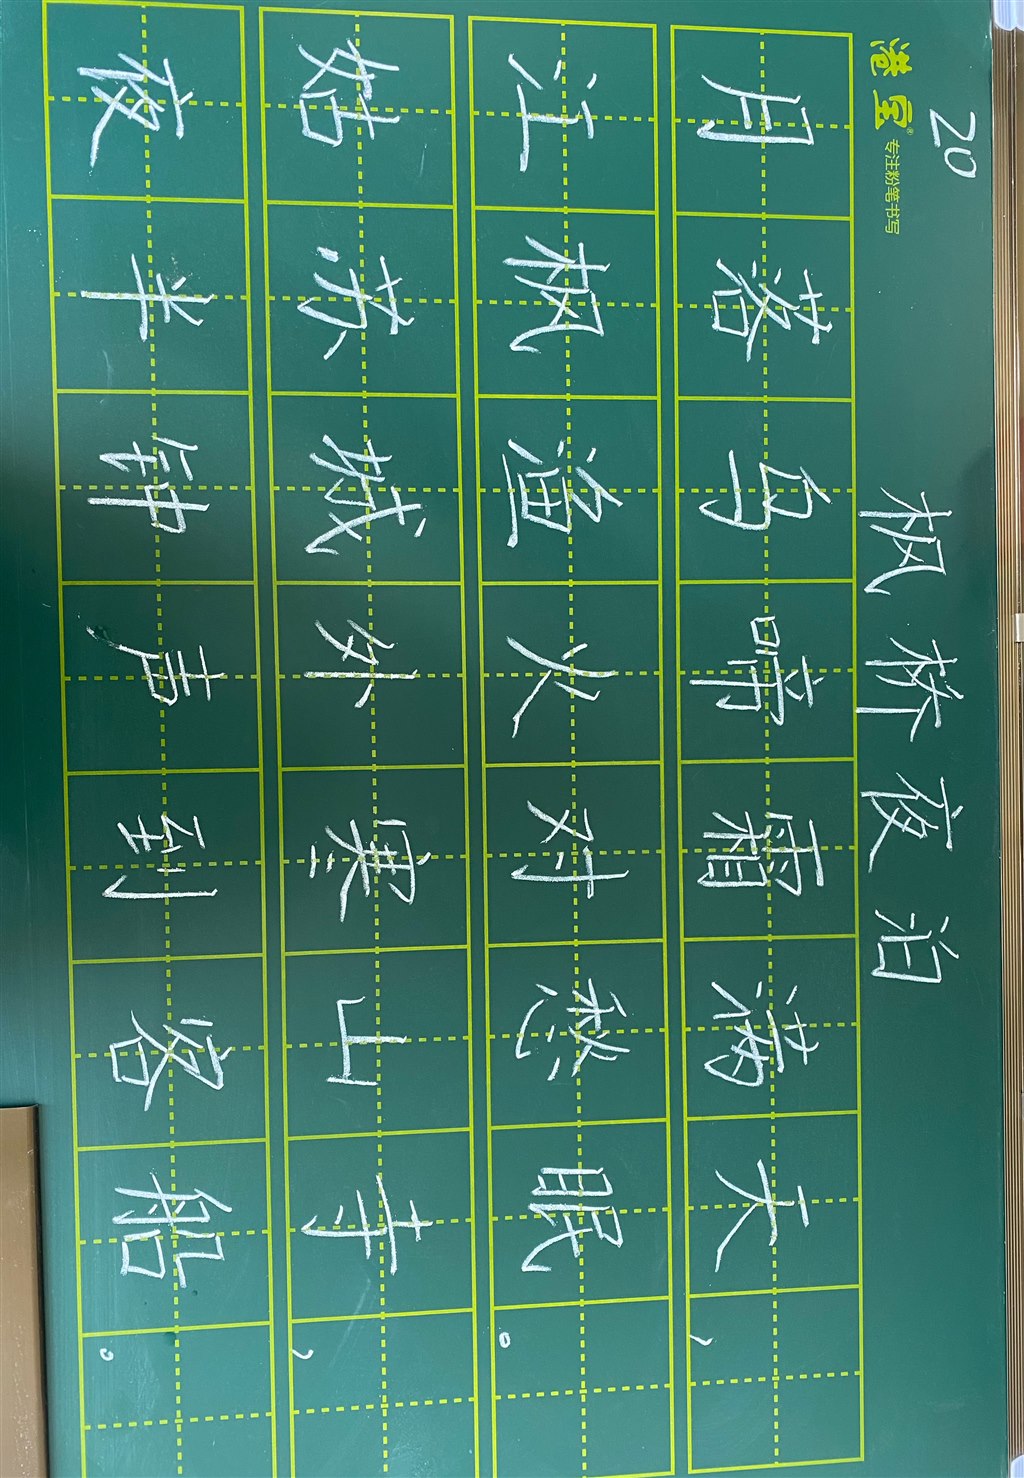 20
港宝®
专注粉笔书写
枫桥夜泊
月落乌啼霜满天，
江枫渔火对愁眠。
姑苏城外寒山寺，
夜半钟声到客船。